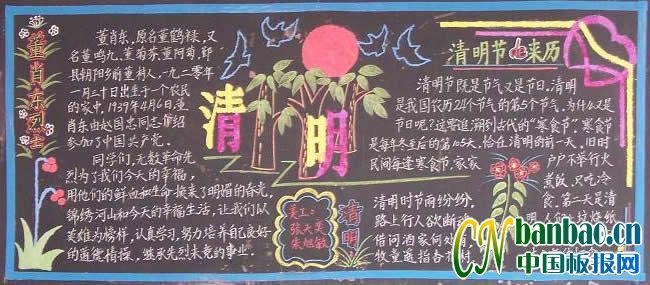 董肖东烈士
董肖东,原名董鹤禄,又
名董鸣九、董菊荪、董阿菊,鄞
县朝阳乡前董村人,一九一二年
一月二十日出生于一个农民
的家中,1939年4月6日董
肖东由赵国忠同志介绍
参加了中国共产党。
同学们,无数革命先
烈为了我们今天的幸福,
用他们的鲜血和生命换来了明媚的春光,
锦绣河山和今天的幸福生活,让我们以
英雄为榜样,认真学习,努力培养自己良好
的道德情操,继承先烈未竟的事业。
清明
美工:
张大英
朱旭敏
清明
清明时节雨纷纷,
路上行人欲断
借问酒家何处有,
牧童遥指各
清明节的来历
清明节既是节气又是节日。清明
是我国农历24个节气的第5个节气,为什么又是
节日呢?这要追溯到古代的“寒食节”。寒食节
是每年冬至后的第105天,恰在清明的前一天,旧时
民间每逢寒食节,家家
户户不举行火
煮饭,只吃冷
食,第一天是清
CN banbao.cn
中国板报网